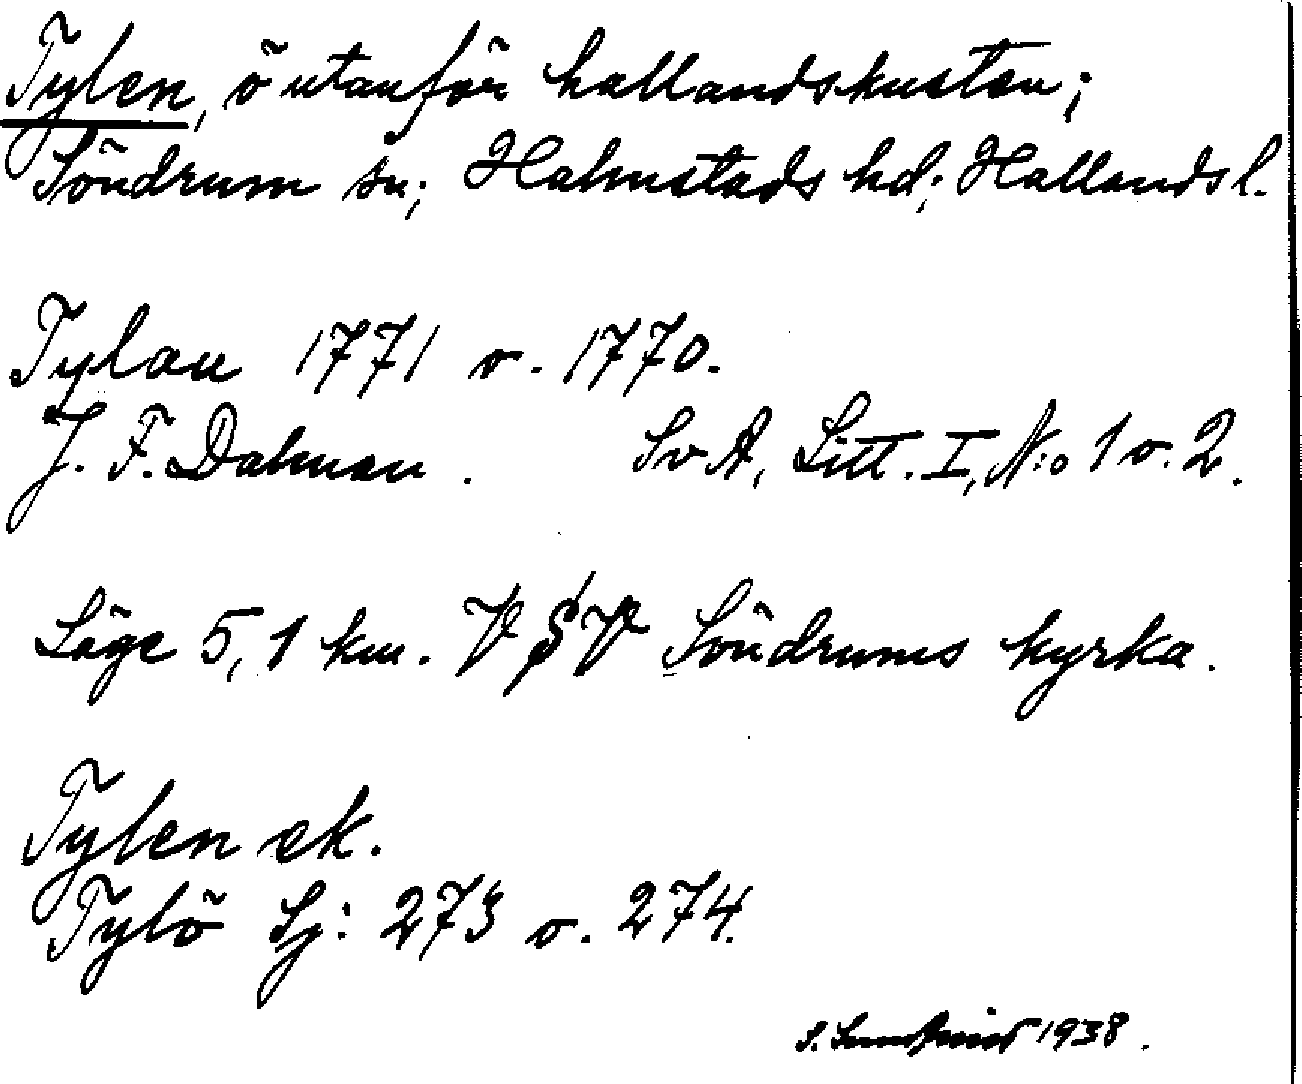 Tylen, ö utanför hallandskusten;
Söndrum sn; Halmstads hd; Hallands l.
Tylan 1771 o. 1770.
J. F. Dalman. Sv A, Litt. I, N:o 1 o. 2.
Läge 5,1 km. V S V Söndrums kyrka.
Tylen ek.
Tylö Sj: 273 o. 274.
S. Sundqvist 1938.